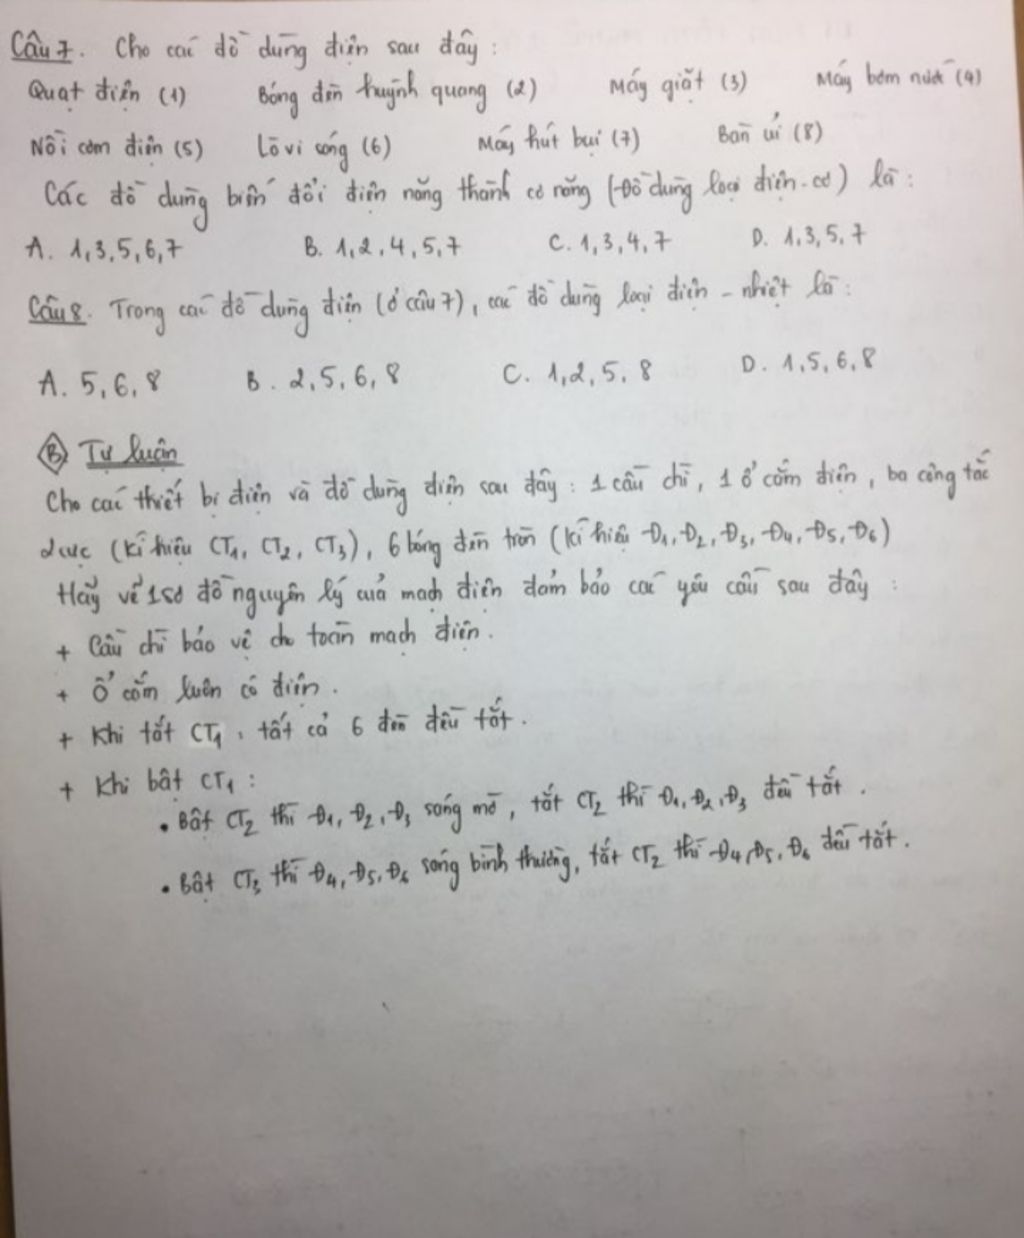 Câu 7. Cho các đồ dùng điện sau đây:
Quạt điện (1) Bóng đèn huỳnh quang (2) Máy giặt (3) Máy bơm nước (4)
Nồi cơm điện (5) Lò vi sóng (6) Máy hút bụi (7) Bàn ủi (8)
Các đồ dùng biến đổi điện năng thành cơ năng (Đồ dùng loại điện-cơ) là:
A. 1,3,5,6,7 B. 1,2,4,5,7 C. 1,3,4,7 D. 1,3,5,7
Câu 8. Trong các đồ dùng điện (ở câu 7), các đồ dùng loại điện - nhiệt là:
A. 5,6,8 B. 2,5,6,8 C. 1,2,5,8 D. 1,5,6,8
B Tự luận
Cho các thiết bị điện và đồ dùng điện sau đây: 1 cầu chì, 1 ổ cắm điện, ba công tắc
2 cực (kí hiệu CT1, CT2, CT3), 6 bóng đèn tròn (kí hiệu Đ1, Đ2, Đ3, Đ4, Đ5, Đ6)
Hãy vẽ 1 sơ đồ nguyên lý của mạch điện đảm bảo các yêu cầu sau đây:
+ Cầu chì bảo vệ cho toàn mạch điện.
+ Ổ cắm luôn có điện.
+ Khi tắt CT1: tất cả 6 đèn đều tắt.
+ Khi bật CT1:
• Bật CT2 thì Đ1, Đ2, Đ3 sáng mờ, tắt CT2 thì Đ1, Đ2, Đ3 đều tắt.
• Bật CT3 thì Đ4, Đ5, Đ6 sáng bình thường, tắt CT2 thì Đ4, Đ5, Đ6 đều tắt.